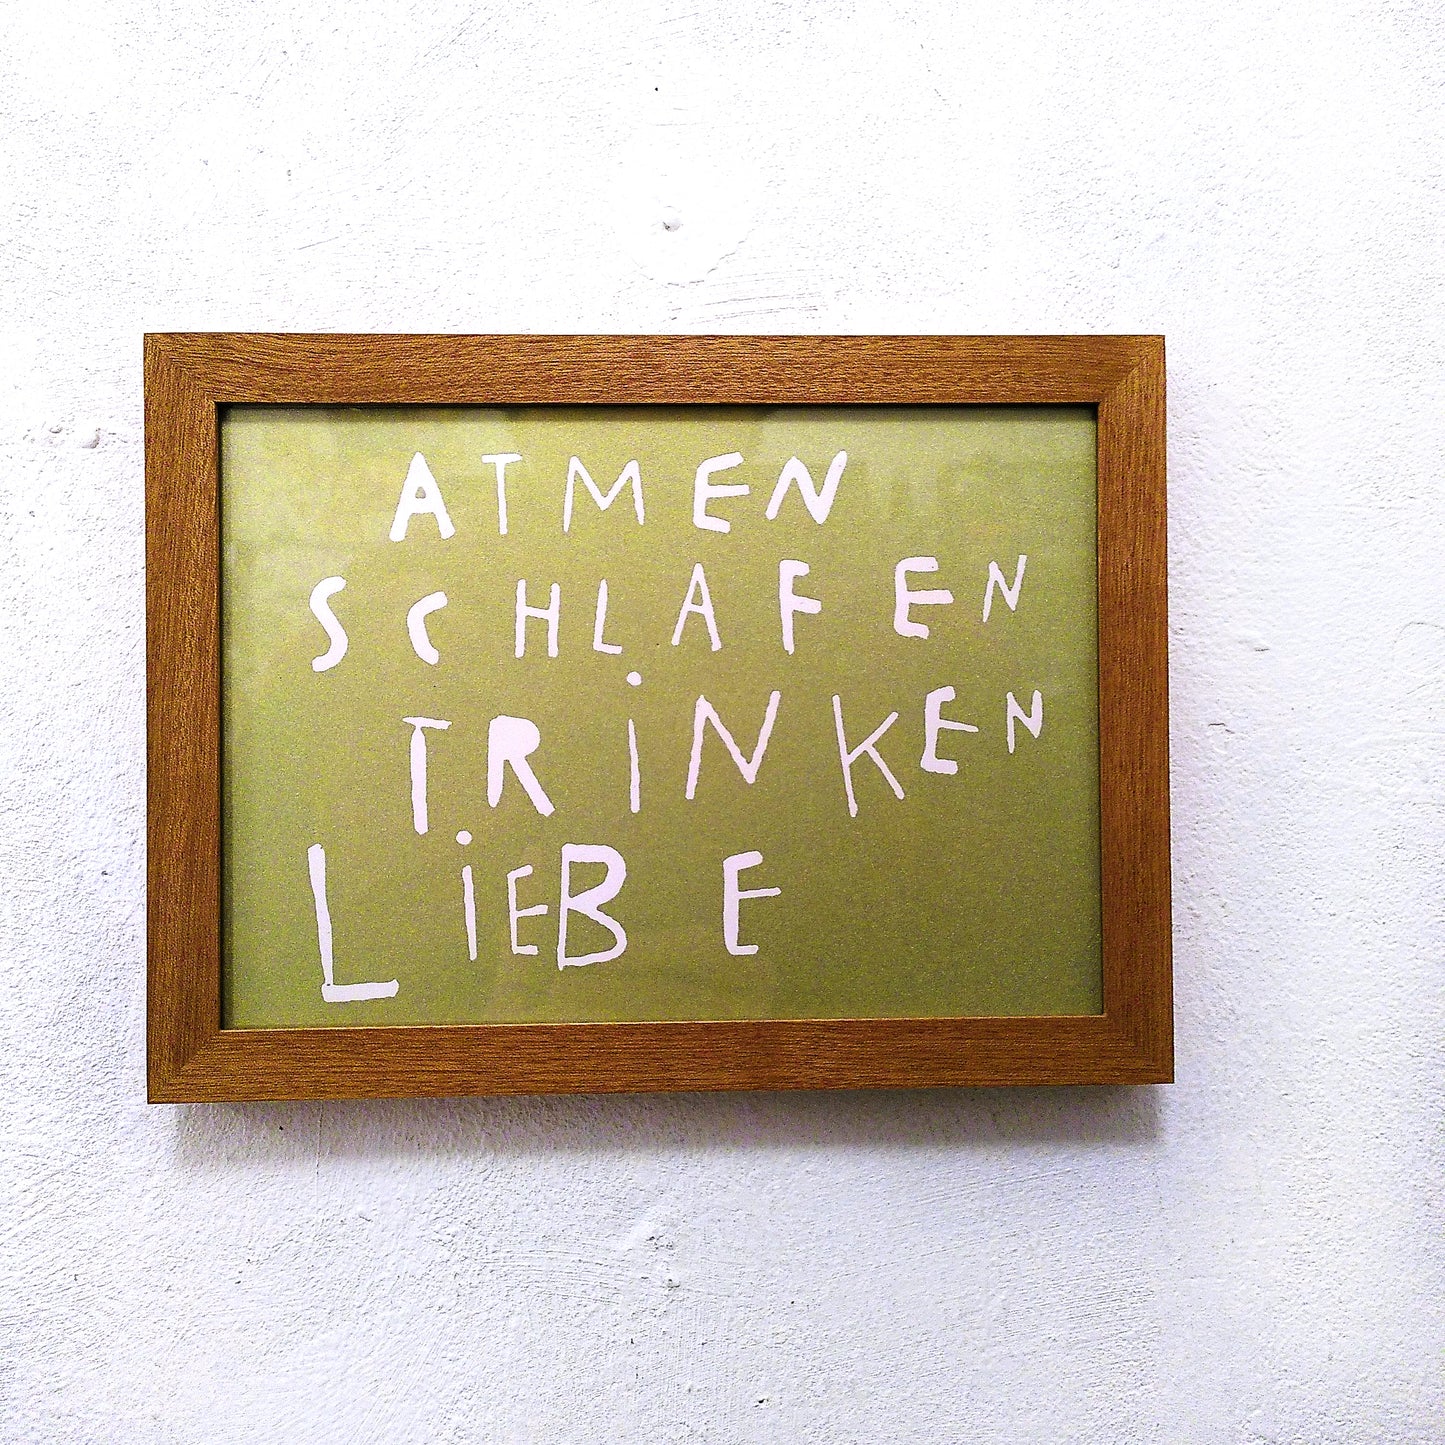 ATMEN
SCHLAFEN
TRiNKEN
LiEBE